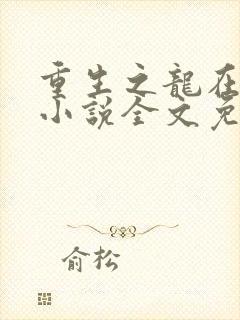 重生之龍在
小說全文免
俞松